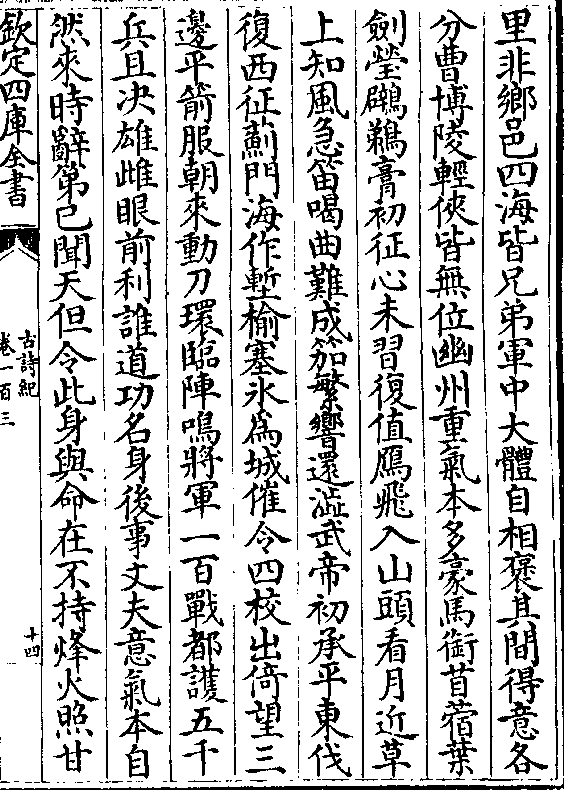 里非鄉邑四海皆兄弟軍中大體自相褒其間得意各
分曹博陵輕俠皆無位幽州重氣本多豪馬銜苜蓿葉
劍瑩鸊鵜膏初征心未習復值鴈飛入山頭看月近草
上知風急笛喝曲難成笳繁響還澁武帝初承平東伐
復西征薊門海作塹榆塞氷為城催令四校出倚望三
邊平箭服朝來動刀環臨陣鳴將軍一百戰都護五千
兵且决雄雌眼前利誰道功名身後事丈夫意氣本自
然來時辭第已聞天但令此身與命在不持烽火照甘
欽定四庫全書
古詩紀
卷一百三
十四